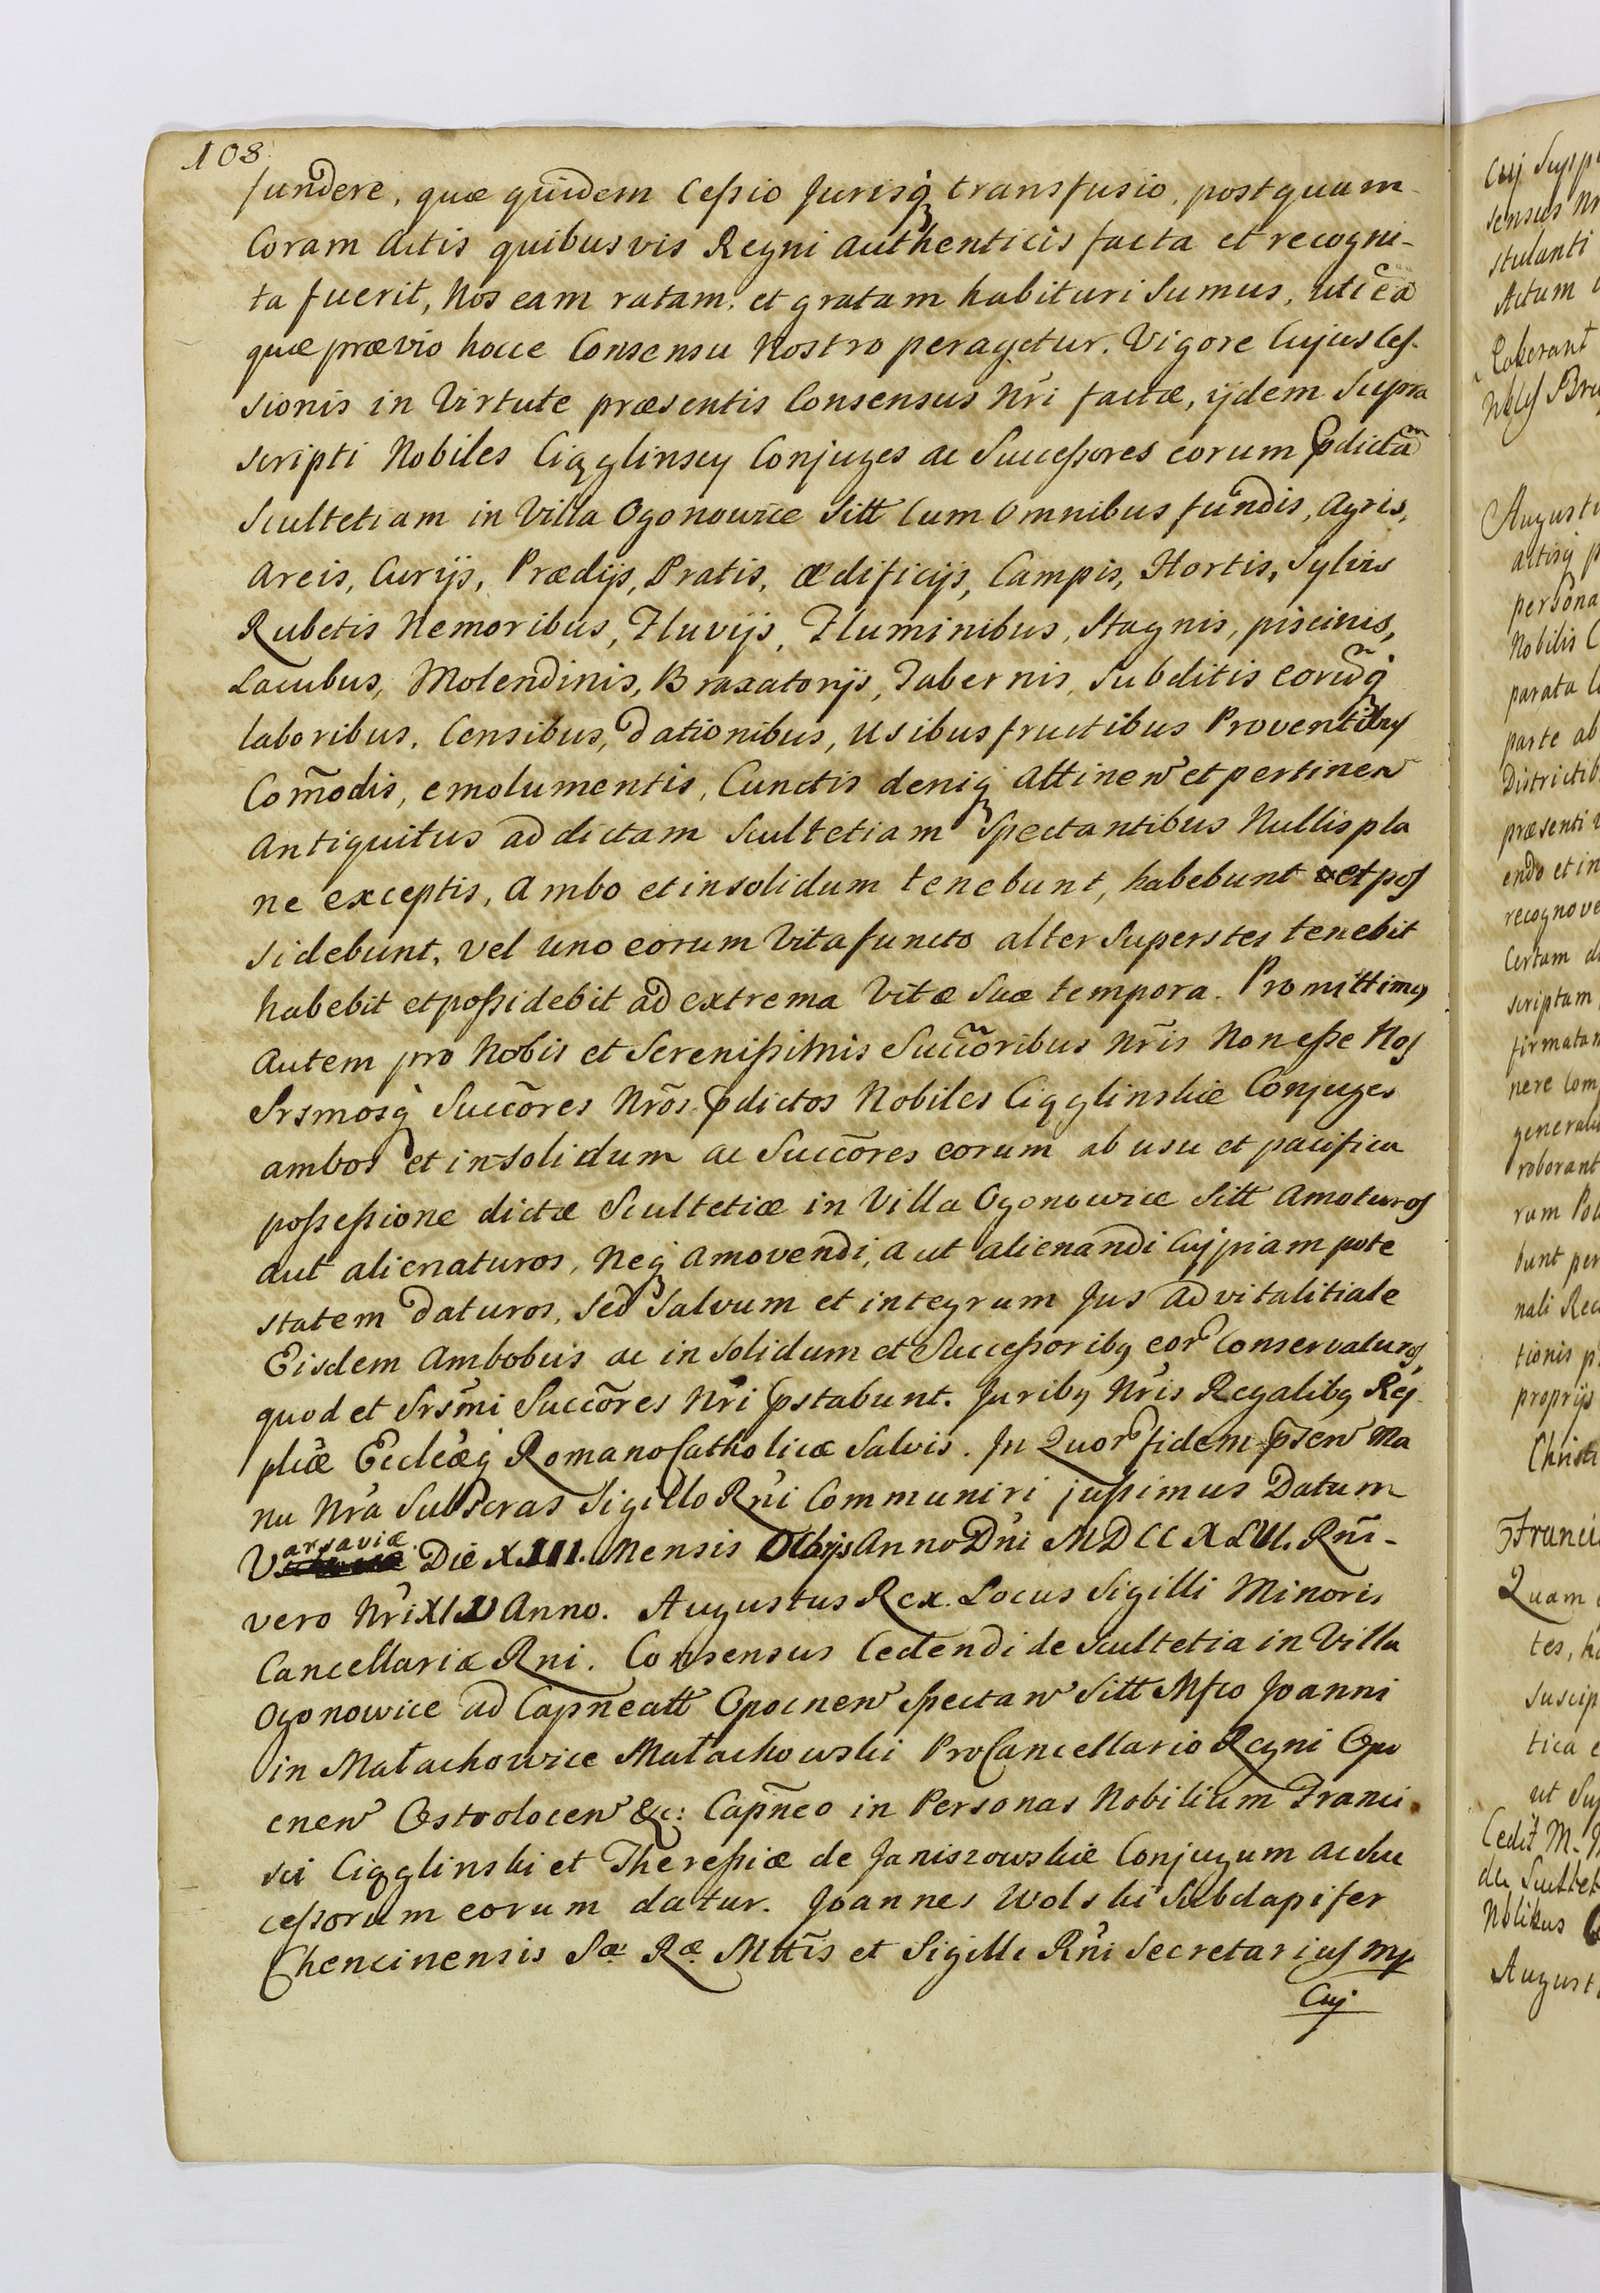 108
fundere, quæ quidem Cessio Jurisq́ transfusio, postquam
Coram Actis quibusvis Regni authenticis facta et recogni-
ta fuerit, Nos eam ratam, et gratam habituri sumus, uti ea
quæ prævio hocce Consensu Nostro peragetur. Vigore Cujus Ces-
sionis in Virtute præsentis Consensus Nri factæ, ijdem Supra
scripti Nobiles Cigglinscy Conjuges ac Successores eorum pdictã
Scultetiam in Villa Ogonowice Sitt Cum Omnibus fundis, Agris,
Areis, Curijs, Prædijs, Pratis, ædificijs, Campis, Hortis, Sylvis
Rubetis Nemoribus, Fluvijs, Fluminibus, Stagnis, piscinis,
Lacubus, Molendinis, Braxatorijs, Tabernis, Subditis eorũq́
laboribus, Censibus, dationibus, Usibusfructibus Proventibus
Com̃odis, emolumentis, Cunctis deniq́ Attinen et pertinen
Antiquitus ad dictam Scultetiam Spectantibus Nullis pla
ne exceptis, Ambo et insolidum tenebunt, habebunt et pos
sidebunt, vel uno eorum Vita functo alter Superstes tenebit
habebit et possidebit ad extrema Vitæ Suæ tempora. Promittimus
Autem pro Nobis et Serenissimis Succõribus Nris Non esse Nos
Srsmosq́ Succõres Nros pdictos Nobiles Cigglinskie Conjuges
ambos et in solidum ac Succõres eorum ab usu et pacifica
possessione dictæ Scultetiæ in Villa Ogonowice Sitt Amoturos
aut alienaturos, Neq́ Amovendi, aut alienandi Cujpiam pote
statem daturos, Sed Salvum et integrum Jus Advitalitiale
Eisdem Ambobus ac in solidum et Successoribus eor Conservaturos,
quod et Srsmi Succõres Nri pstabunt. Juribus Nris Regalibus Rej
plicæ Eccleæq́ Romano Catholicæ Salvis. In Quor fidem psen Ma
nu Nra Subscras Sigillo Rni Communiri jussimus Datum
Varsaviæ Die XIII. Mensis Octobris Anno Dni MDCCXLVI. Rni-
vero Nri XIV Anno. Augustus Rex. Locus Sigilli Minoris
Cancellariæ Rni. Consensus Cedendi de Scultetia in Villa
Ogonowice ad Capneatt Opocnen Spectan Sitt Mfco Joanni
in Małachowice Małachowski ProCancellario Regni Opo
cnen Ostrolocen &c: Capneo in Personas Nobilium Franci
sci Cigglinski et Theressiæ de Janiszowskie Conjugum ac Suc
cessorum eorum datur. Joannes Wolski Subdapifer
Chencinensis Sæ Ræ Mttis et Sigilli Rni Secretarius mp
Cuj
Cuj
sensus
stulanti
Actum
Augusti
Nobilis
parata
parte ab
præsenti
endo et in
Certam
scriptam
nere
roborant
rum
bunt
nali
tionis
proprijs
Quam
tes,
tica
ut
Cedit M.
August